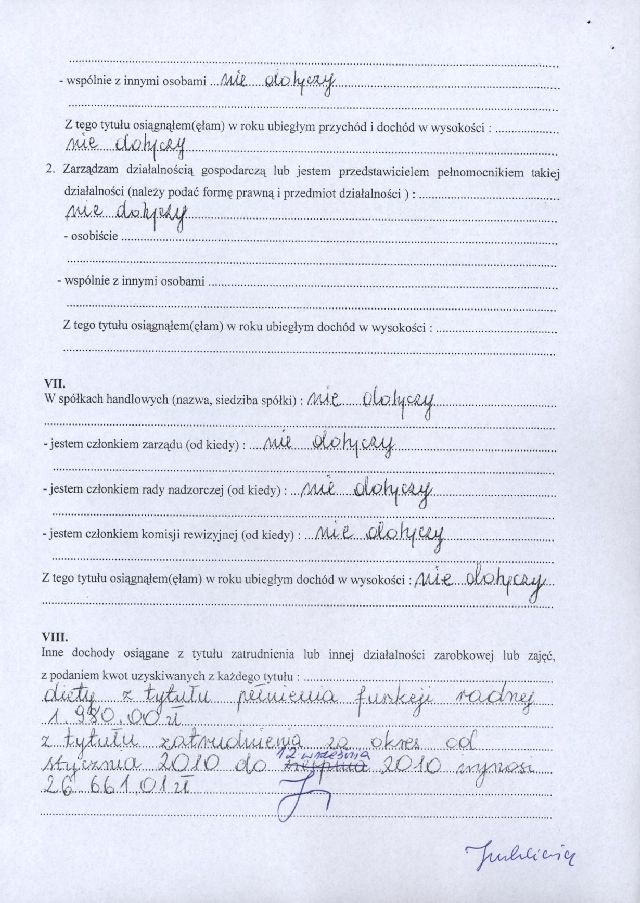 - wspólnie z innymi osobami nie dotyczy
Z tego tytułu osiągnąłem(ęłam) w roku ubiegłym przychód i dochód w wysokości :
nie dotyczy
2. Zarządzam działalnością gospodarczą lub jestem przedstawicielem pełnomocnikiem takiej
działalności (należy podać formę prawną i przedmiot działalności ) :
nie dotyczy
- osobiście
- wspólnie z innymi osobami
Z tego tytułu osiągnąłem(ęłam) w roku ubiegłym dochód w wysokości :
VII.
W spółkach handlowych (nazwa, siedziba spółki) : nie dotyczy
- jestem członkiem zarządu (od kiedy) : nie dotyczy
- jestem członkiem rady nadzorczej (od kiedy) : nie dotyczy
- jestem członkiem komisji rewizyjnej (od kiedy) : nie dotyczy
Z tego tytułu osiągnąłem(ęłam) w roku ubiegłym dochód w wysokości : nie dotyczy
VIII.
Inne dochody osiągane z tytułu zatrudnienia lub innej działalności zarobkowej lub zajęć,
z podaniem kwot uzyskiwanych z każdego tytułu :
diety z tytułu pełnienia funkcji radnej
1.980,00 zł
z tytułu zatrudnienia za okres od
12 września
stycznia 2010 do sierpnia 2010 wynosi
26 661,01 zł